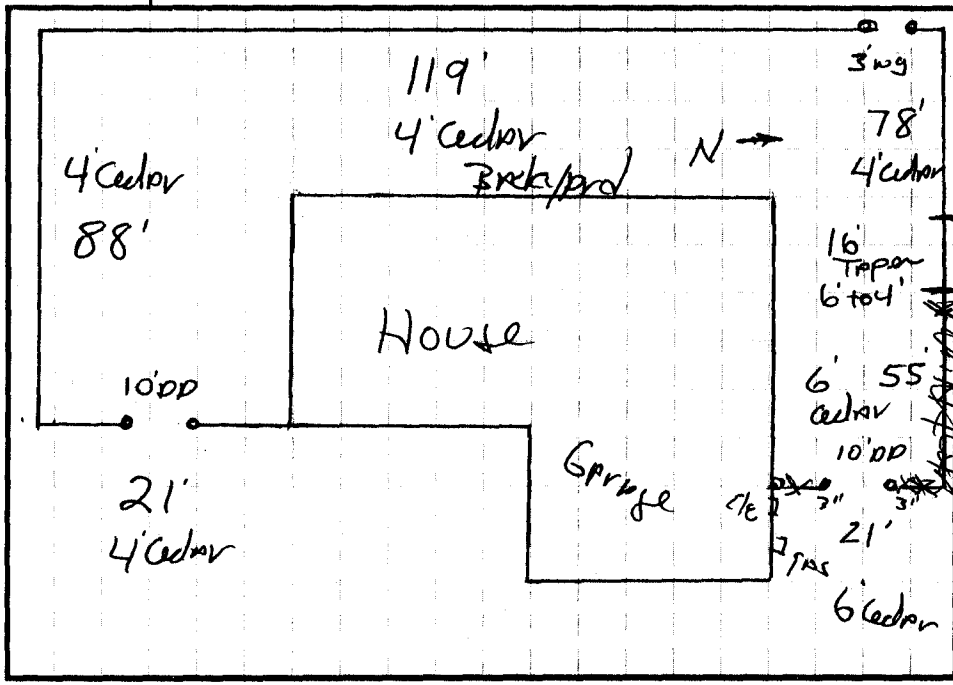 119'
4' Cedar
Backyard
N
3' wg
78'
4' Cedar
4' Cedar
88'
16'
Taper
6' to 4'
House
6'
Cedar
55'
10' DD
10' DD
3"
3"
Garage
21'
4' Cedar
21'
gas
6' Cedar